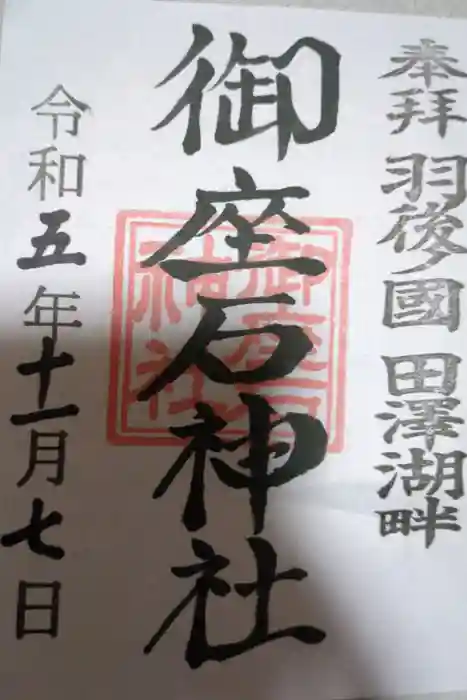 奉拝 羽後國 田澤湖畔
御座石神社
御座石神社
令和五年十一月七日